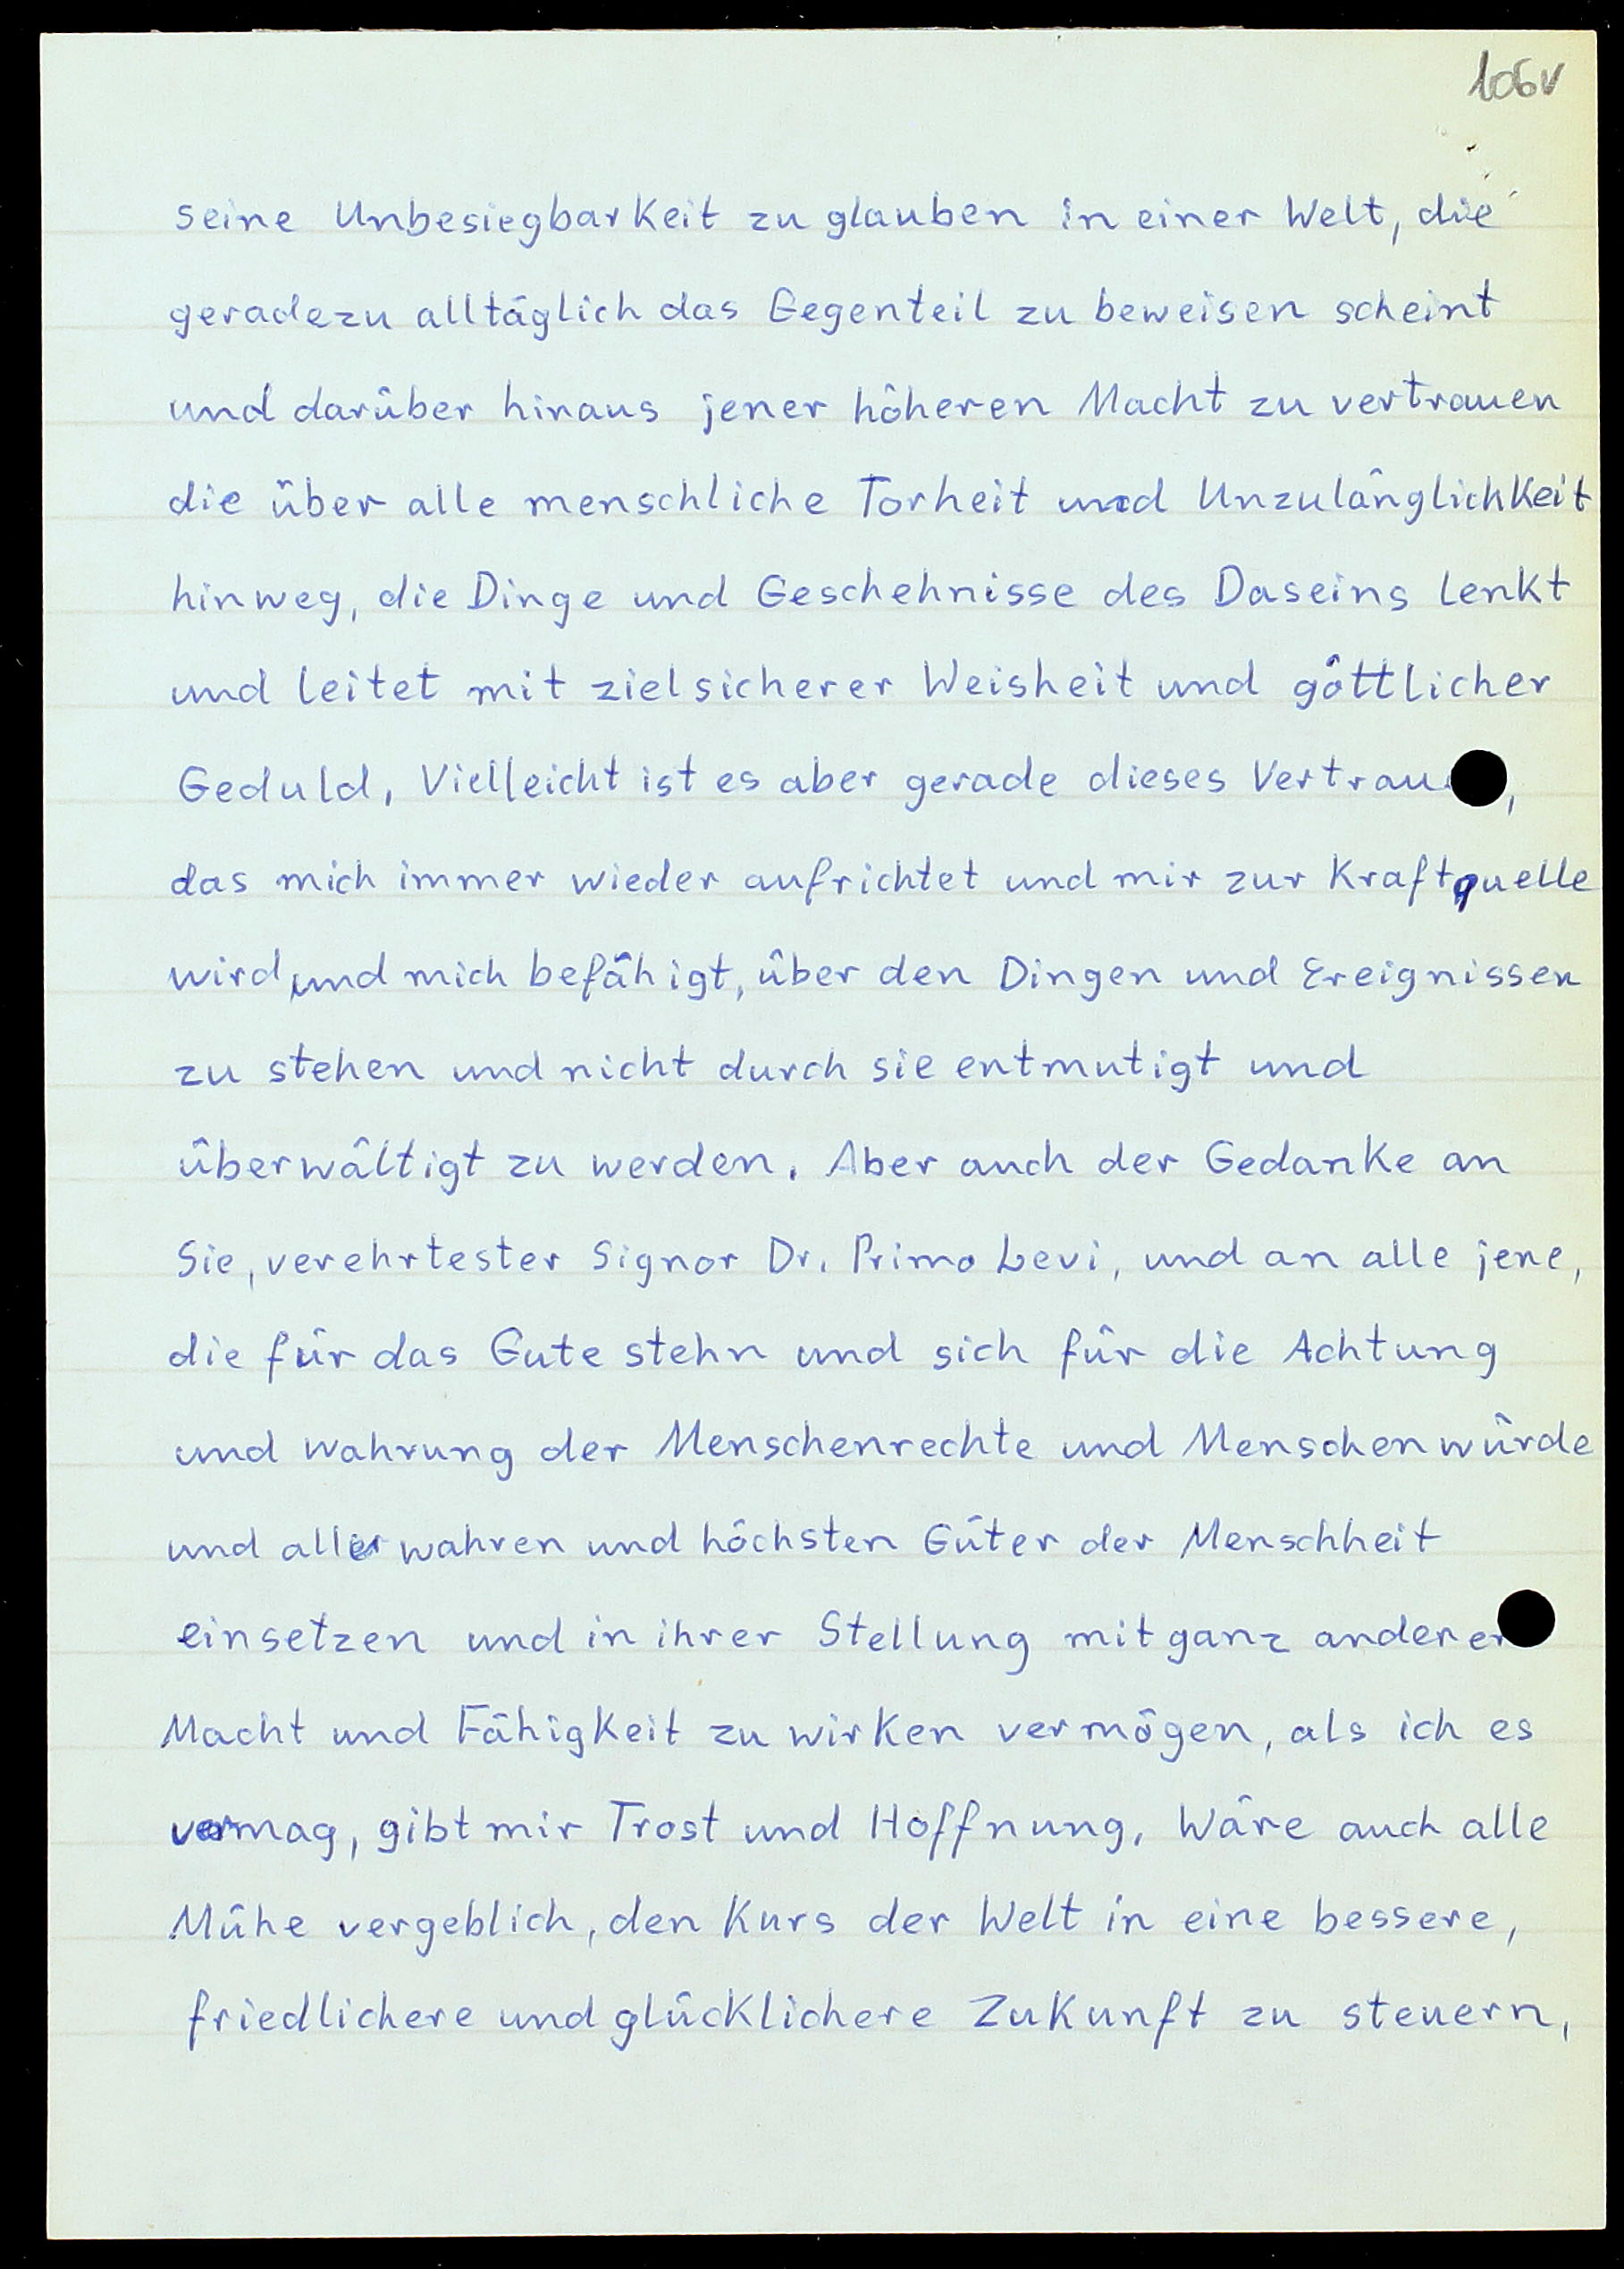 106v
seine Unbesiegbarkeit zu glauben in einer Welt, die
geradezu alltäglich das Gegenteil zu beweisen scheint
und darüber hinaus jener höheren Macht zu vertrauen
die über alle menschliche Torheit und Unzulänglichkeit
hinweg, die Dinge und Geschehnisse des Daseins lenkt
und leitet mit zielsicherer Weisheit und göttlicher
Geduld, Vielleicht ist es aber gerade dieses
das mich immer wieder aufrichtet und mir zur Kraftquelle
wird und mich befähigt, über den Dingen und Ereignissen
zu stehen und nicht durch sie entmutigt und
überwältigt zu werden. Aber auch der Gedanke an
Sie, verehrtester Signor Dr. Primo Levi, und an alle jene,
die für das Gute stehn und sich für die Achtung
und Wahrung der Menschenrechte und Menschenwürde
und aller wahren und höchsten Güter der Menschheit
einsetzen und in ihrer Stellung mit ganz anderer
Macht und Fähigkeit zu wirken vermögen, als ich es
vermag, gibt mir Trost und Hoffnung, Wäre auch alle
Mühe vergeblich, den Kurs der Welt in eine bessere,
friedlichere und glücklichere Zukunft zu steuern,